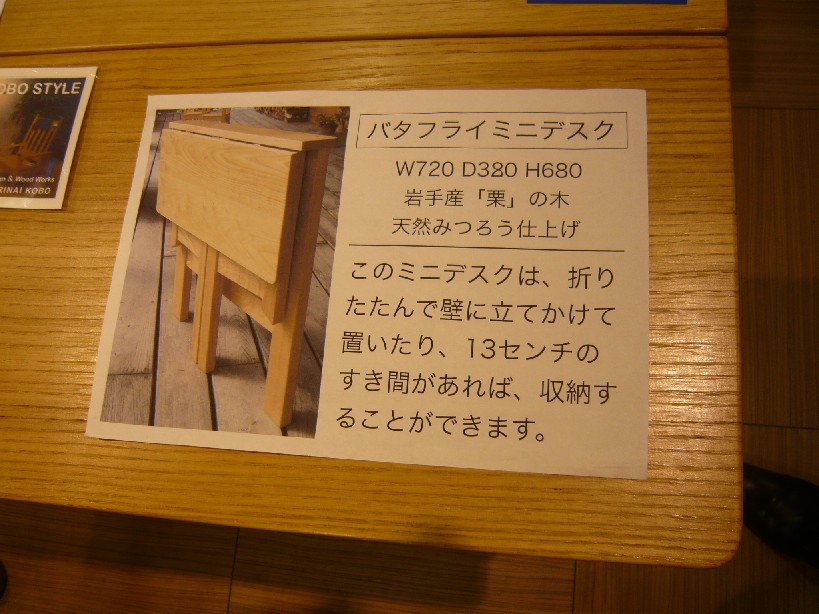 OBO STYLE
n & Wood Works
RINAI KOBO
バタフライミニデスク
W720 D320 H680
岩手産「栗」の木
天然みつろう仕上げ
このミニデスクは、折り
たたんで壁に立てかけて
置いたり、13センチの
すき間があれば、収納す
ることができます。